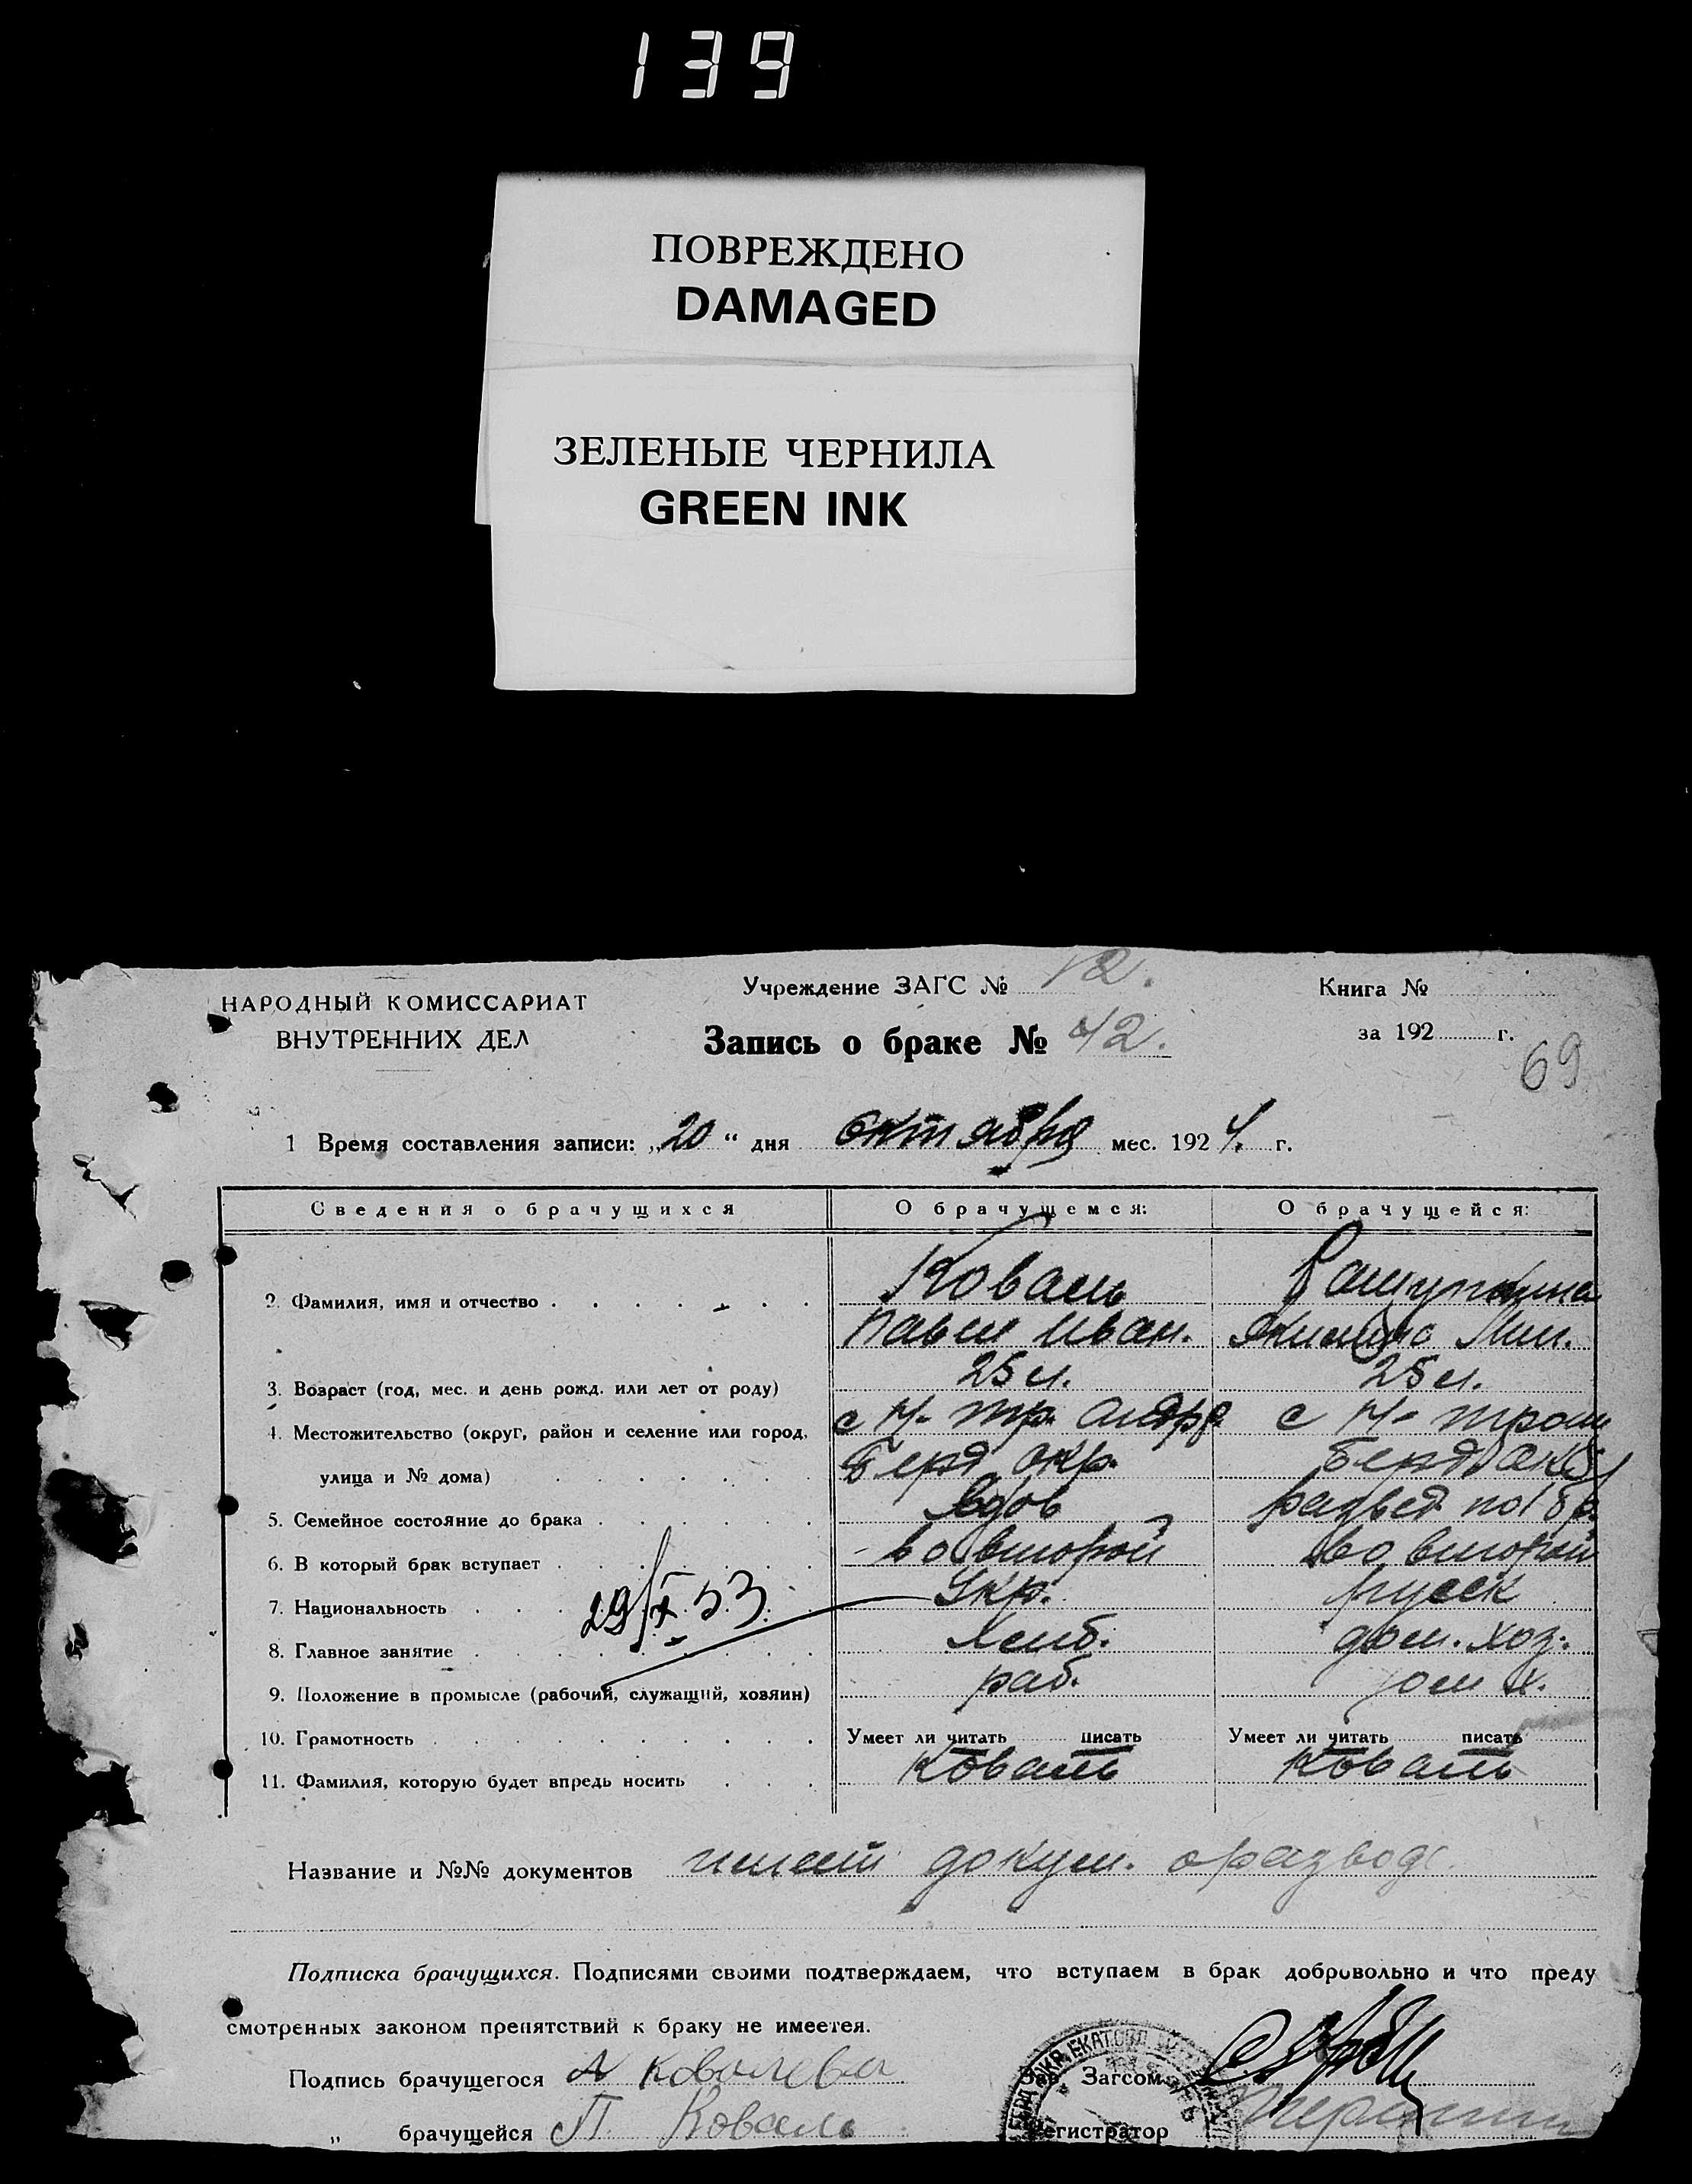 139
ПОВРЕЖДЕНО
DAMAGED
ЗЕЛЕНЫЕ ЧЕРНИЛА
GREEN INK
НАРОДНЫЙ КОМИССАРИАТ
ВНУТРЕННИХ ДЕЛ
Учреждение ЗАГС № 12.
Запись о браке № 42.
Книга №
за 192 г.
69
1 Время составления записи: „20“ дня октября мес. 1924. г.
Сведения о брачущихся О брачущемся: О брачущейся:
2. Фамилия, имя и отчество Коваль
Павел Иван. Мих.
3. Возраст (год, мес. и день рожд. или лет от роду) 25 л. 25 л.
4. Местожительство (округ, район и селение или город, с Н-тр. с Н-
улица и № дома) Берд окр. Берд.
5. Семейное состояние до брака вдов развед. по 1 бр.
6. В который брак вступает во второй во второй
7. Национальность Укр. русск
29/X 53
8. Главное занятие Хлеб. дом. хоз.
9. Положение в промысле (рабочий, служащий, хозяин) раб. дом х.
10. Грамотность Умеет ли читать писать Умеет ли читать писать
11. Фамилия, которую будет впредь носить Коваль Коваль
Название и №№ документов имеет докум. о разводе.
Подписка брачущихся. Подписями своими подтверждаем, что вступаем в брак добровольно и что преду
смотренных законом препятствий к браку не имеется.
Подпись брачущегося А Ковалева
Зав. Загсом
„ брачущейся П. Коваль
Регистратор